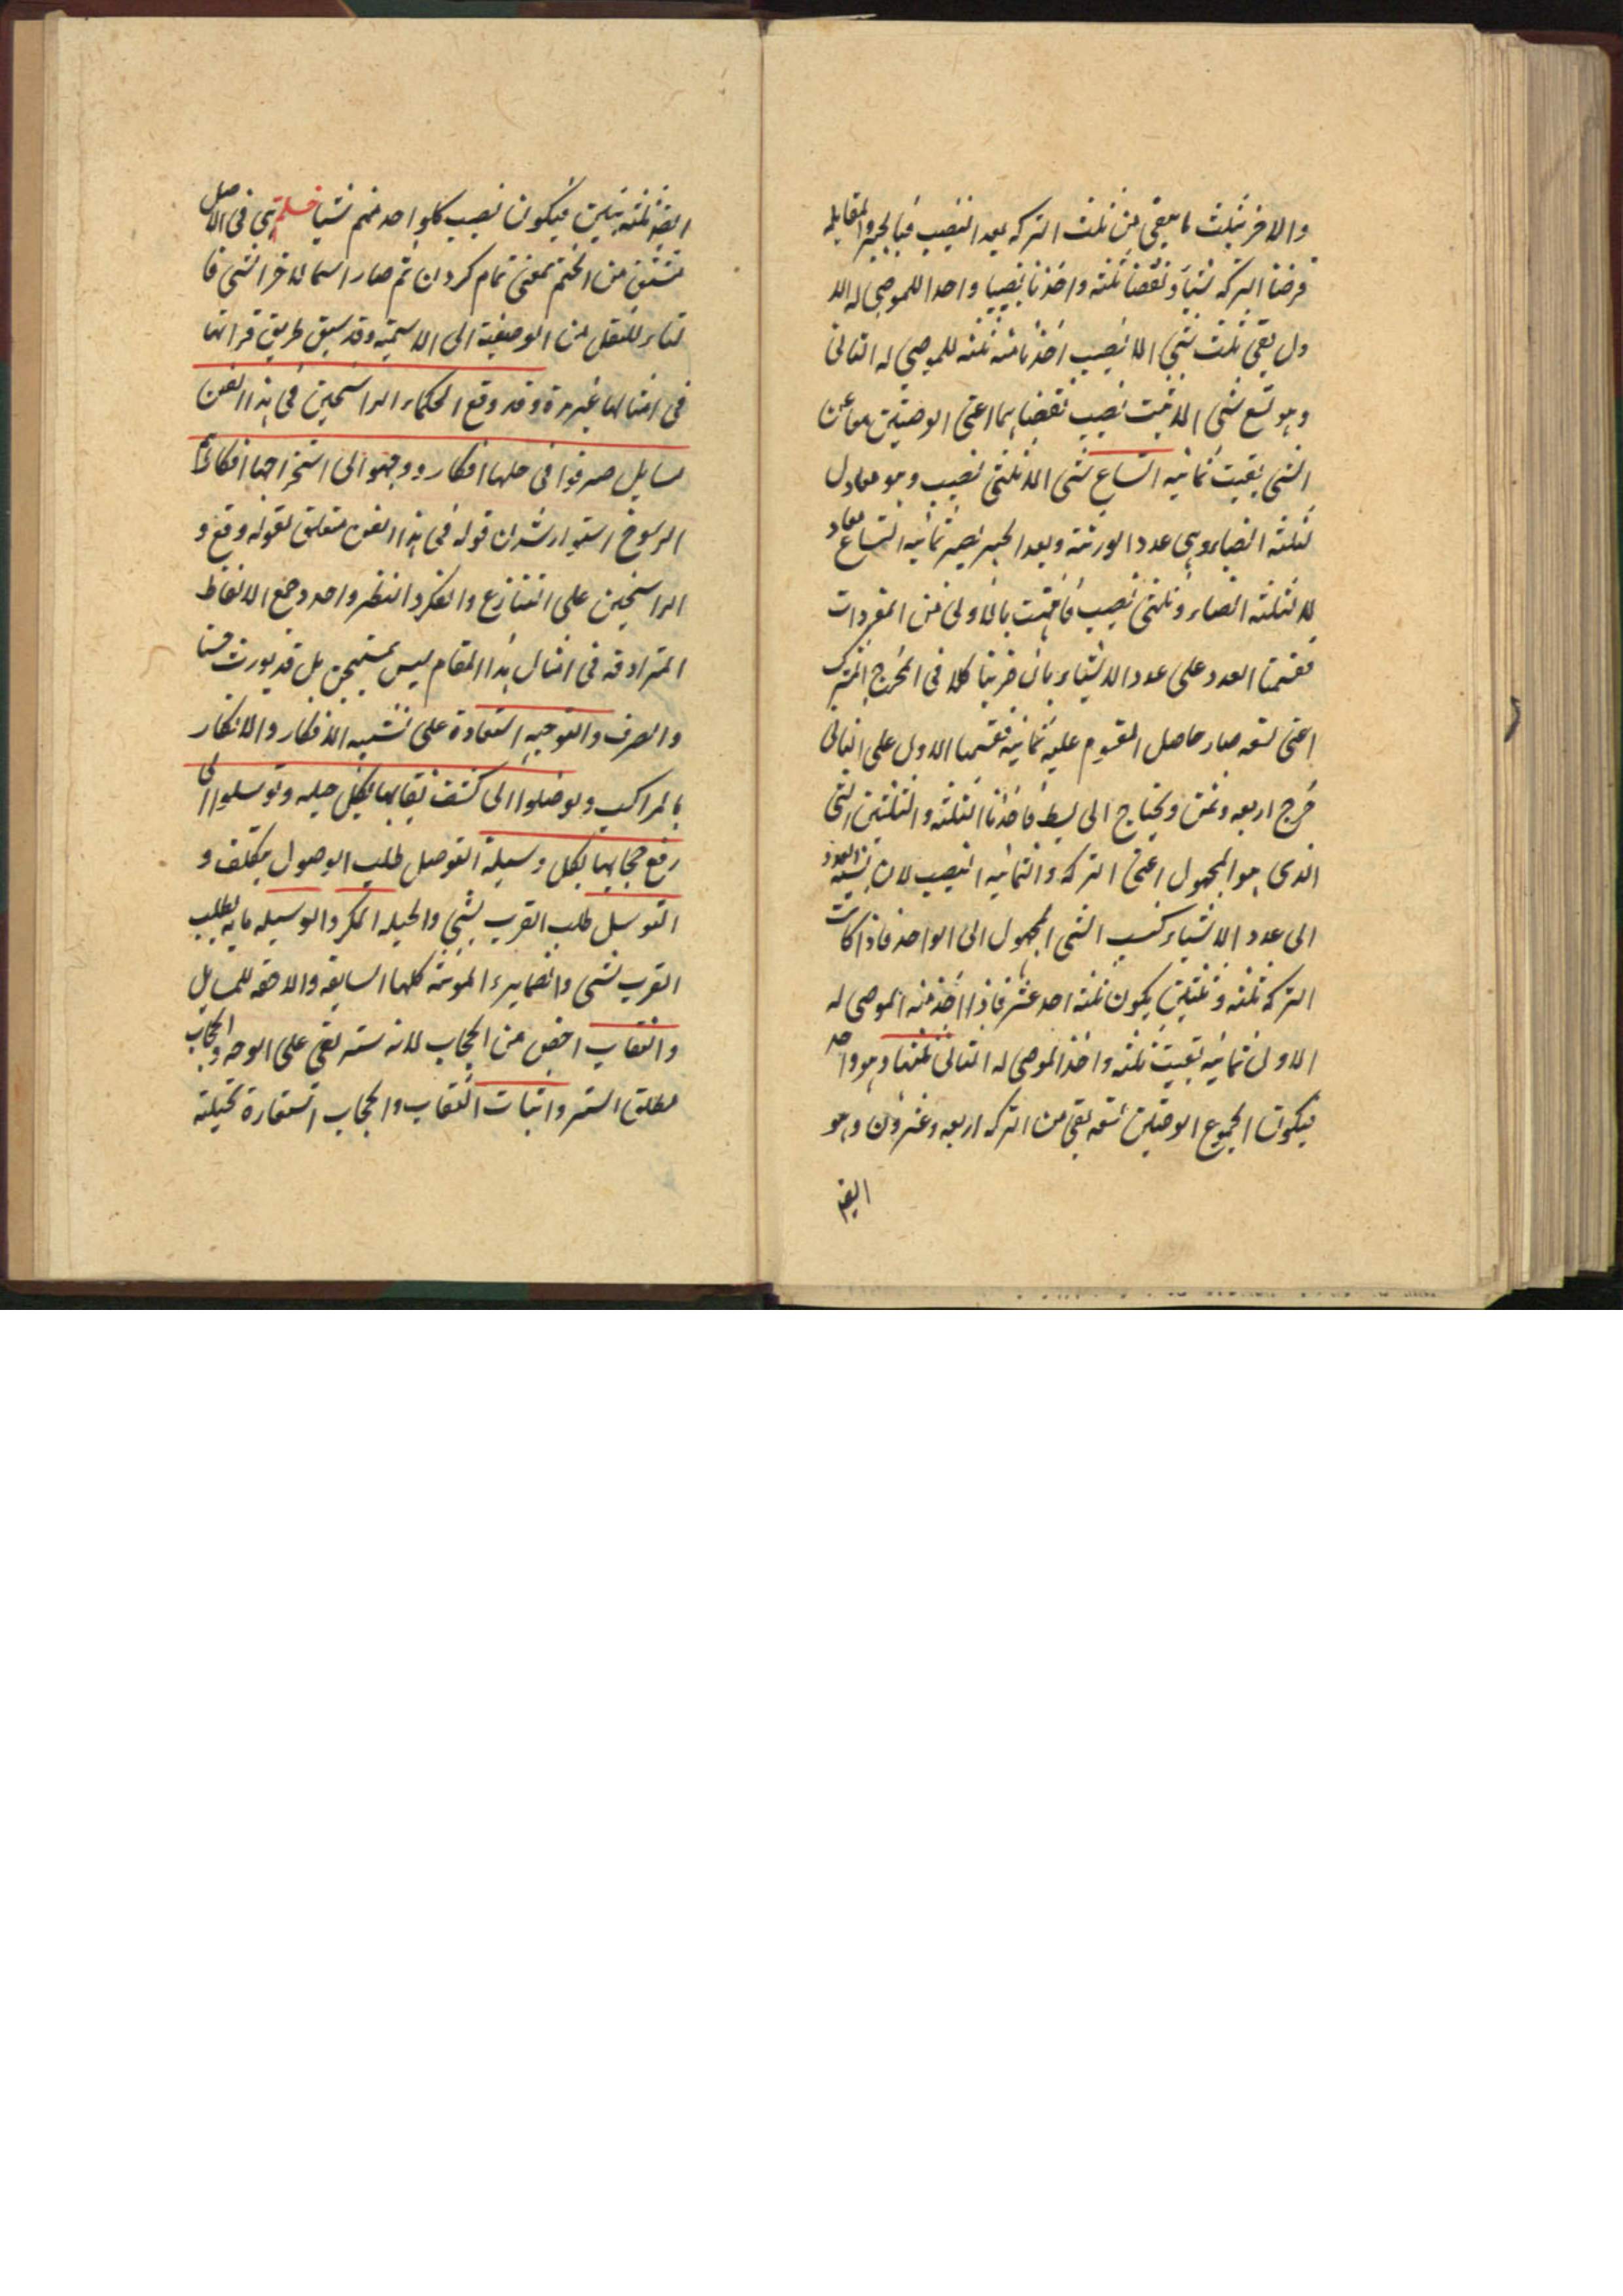 والاخر بثلث ما يبقى من ثلث التركه بعد النصيب فبالجبر والمقابله
فرضنا التركه شيئا و نقصنا ثلثه واخذنا نصيبا واحدا للموصى له الا
ول بقى ثلث شئ الا نصيب اخذنا منه ثلثه للموصى له الثانى
وهو تسع شئ الا ثلث نصيب نقصناهما اعنى الوصيتين معا عن
الشئ بقيت ثمانيه اتساع شئ الا ثلثى نصيب وهو معادل
لثلثه انصباء وهى عدد الورثه وبعد الجبر يصير ثمانيه اتساع معاد
لا لثلثه انصباء وثلثى نصيب فانتهت بالاولى من المفردات
فقسمنا العدد على عدد الاشياء بان ضربنا كلا فى المخرج المشترك
اعنى تسعه صار حاصل المقسوم عليه ثمانيه فقسمنا الاول على الثانى
خرج اربعه وثمن ويحتاج الى بسط فاخذنا الثلثه والثلثين الشئ
الذى هو المجهول اعنى التركه والثمانيه النصيب لان نسبه العدد
الى عدد الاشياء كنسب الشئ المجهول الى الواحد فاذا كانت
التركه ثلثه و ثلثين يكون ثلثه احد عشر فاذا اخذ منه الموصى له
الاولى ثمانيه بقيت ثلثه واخذ الموصى له الثانى ثلثها وهو واحد
فيكون المجموع الوصيتين تسعه بقى من التركه اربعه وعشرون وهو
ايض
ايض ثلثه بنين فيكون نصيب كلواحد منهم شيئا خاتمة هى فى الاصل
مشتق من الختم بمعنى تمام كردن ثم صار اسما لاخر الشئ فا
لتاء للنقل من الوصفيه الى الاسميه وقد سبق طريق قرائتها
فى امثالها غير مرة وقد وقع للحكماء الراسخين فى هذا الفن
مسايل صرفوا فى حلها افكار ووجهوا الى استخراجها انظارهم
الرسوخ استوار شدن قوله فى هذا الفن متعلق بقوله وقع و
الراسخين على التنازع والفكر والنظر واحد وجمع الالفاظ
المترادفه فى امثال هذا المقام ليس بمستهجن بل قد يورث حسنا
والصرف والتوجيه استعارة على تشبيه الافكار والانظار
بالمراكب وتوصلوا الى كشف نقابها بكل حيله وتوسلوا الى
رفع حجابها بكل وسيلة التوصل طلب الوصول بتكلف و
التوسل طلب القرب بشئ والحيله المكر والوسيله ما به يطلب
القرب بشئ والضماير المونثه كلها السابقه والاحقه للمسايل
والنقاب اخص من الحجاب لانه ستر يقى على الوجه والحجاب
مطلق الستر واثبات النقاب والحجاب استعارة تخيليه